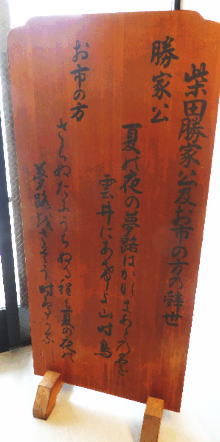 柴田勝家公及お市の方の辞世
勝家公
夏の夜の夢路はかなきあとの名を
雲井にあげよ山時鳥
お市の方
さらぬだにうちぬる程も夏の夜の
夢路をさそう時鳥かな